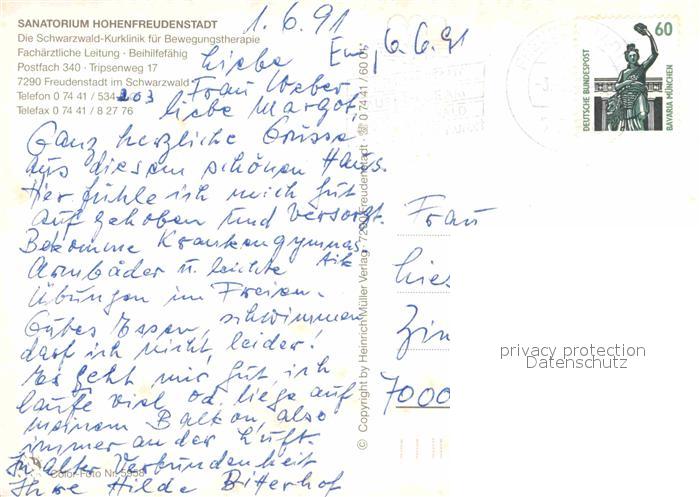 SANATORIUM HOHENFREUDENSTADT
Die Schwarzwald-Kurklinik für Bewegungstherapie
Fachärztliche Leitung · Beihilfefähig
Postfach 340 · Tripsenweg 17
7290 Freudenstadt im Schwarzwald
Telefon 0 74 41 / 534 203
Telefax 0 74 41 / 8 27 76
1.6.91
6.6.91
Liebe
Frau Weber
liebe Margot.
Ganz herzliche Grüsse
aus diesem schönen Haus.
Hier fühle ich mich gut
aufgehoben und versorgt.
Bekomme Krankengymnas
tik
Armbäder u. leichte
Übungen im Freien.
Gutes Essen, schwimmen
darf ich nicht leider!
Es geht mir gut, ich
laufe viel od. liege auf
meinem Balkon, also
immer an der Luft.
In alter Verbundenheit
Ihre Hilde Bitterhof
Color-Foto Nr. 5958
© Copyright by Heinrich Müller Verlag · 7290 Freudenstadt · ☏ 0 74 41 / 60 01
60
DEUTSCHE BUNDESPOST
BAVARIA MÜNCHEN
Frau
Zin
7000
privacy protection
Datenschutz